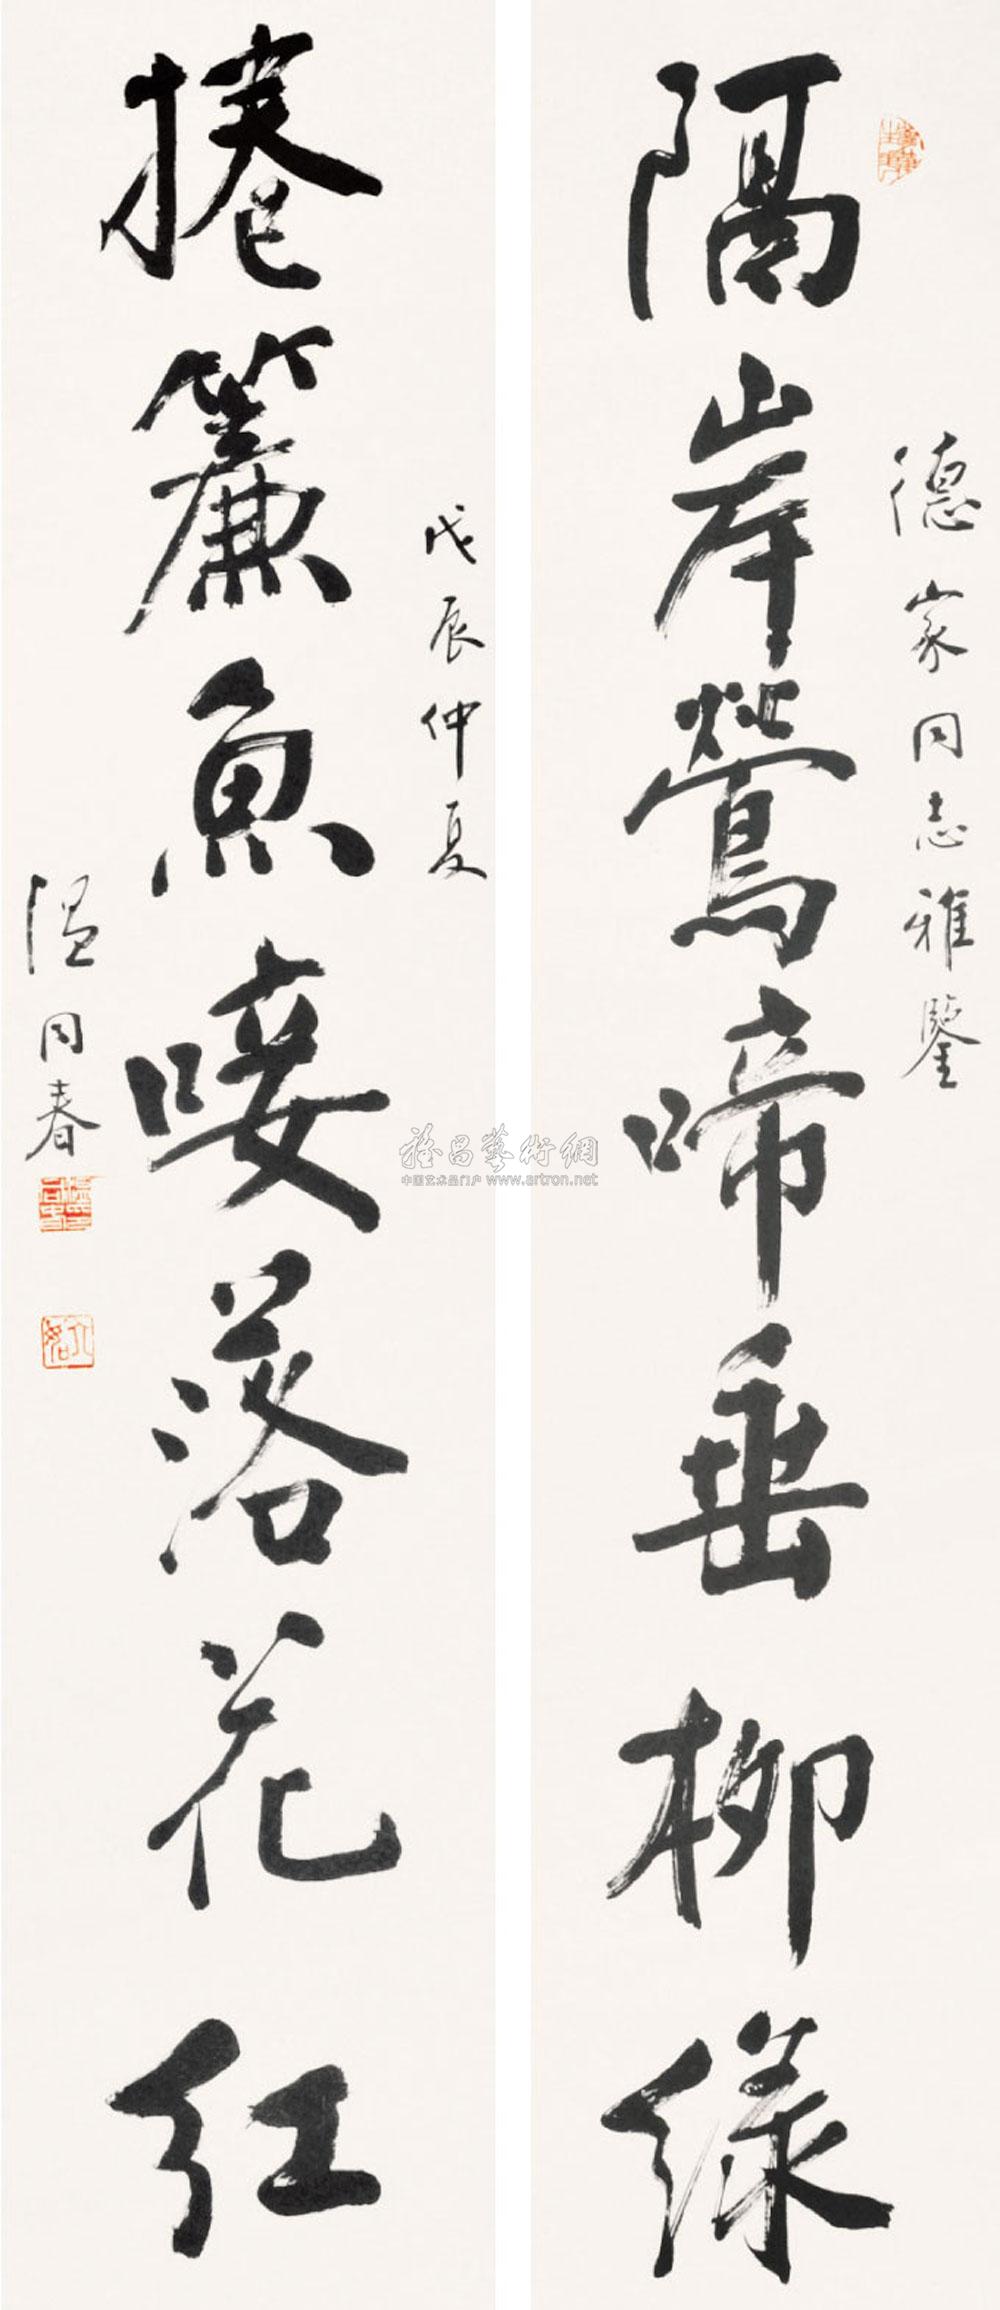 德家同志雅鑒
隔岸鶯啼垂柳綠
捲簾魚唼落花紅
戊辰仲夏
溫同春
雅昌藝術網
中国艺术品门户 www.artron.net